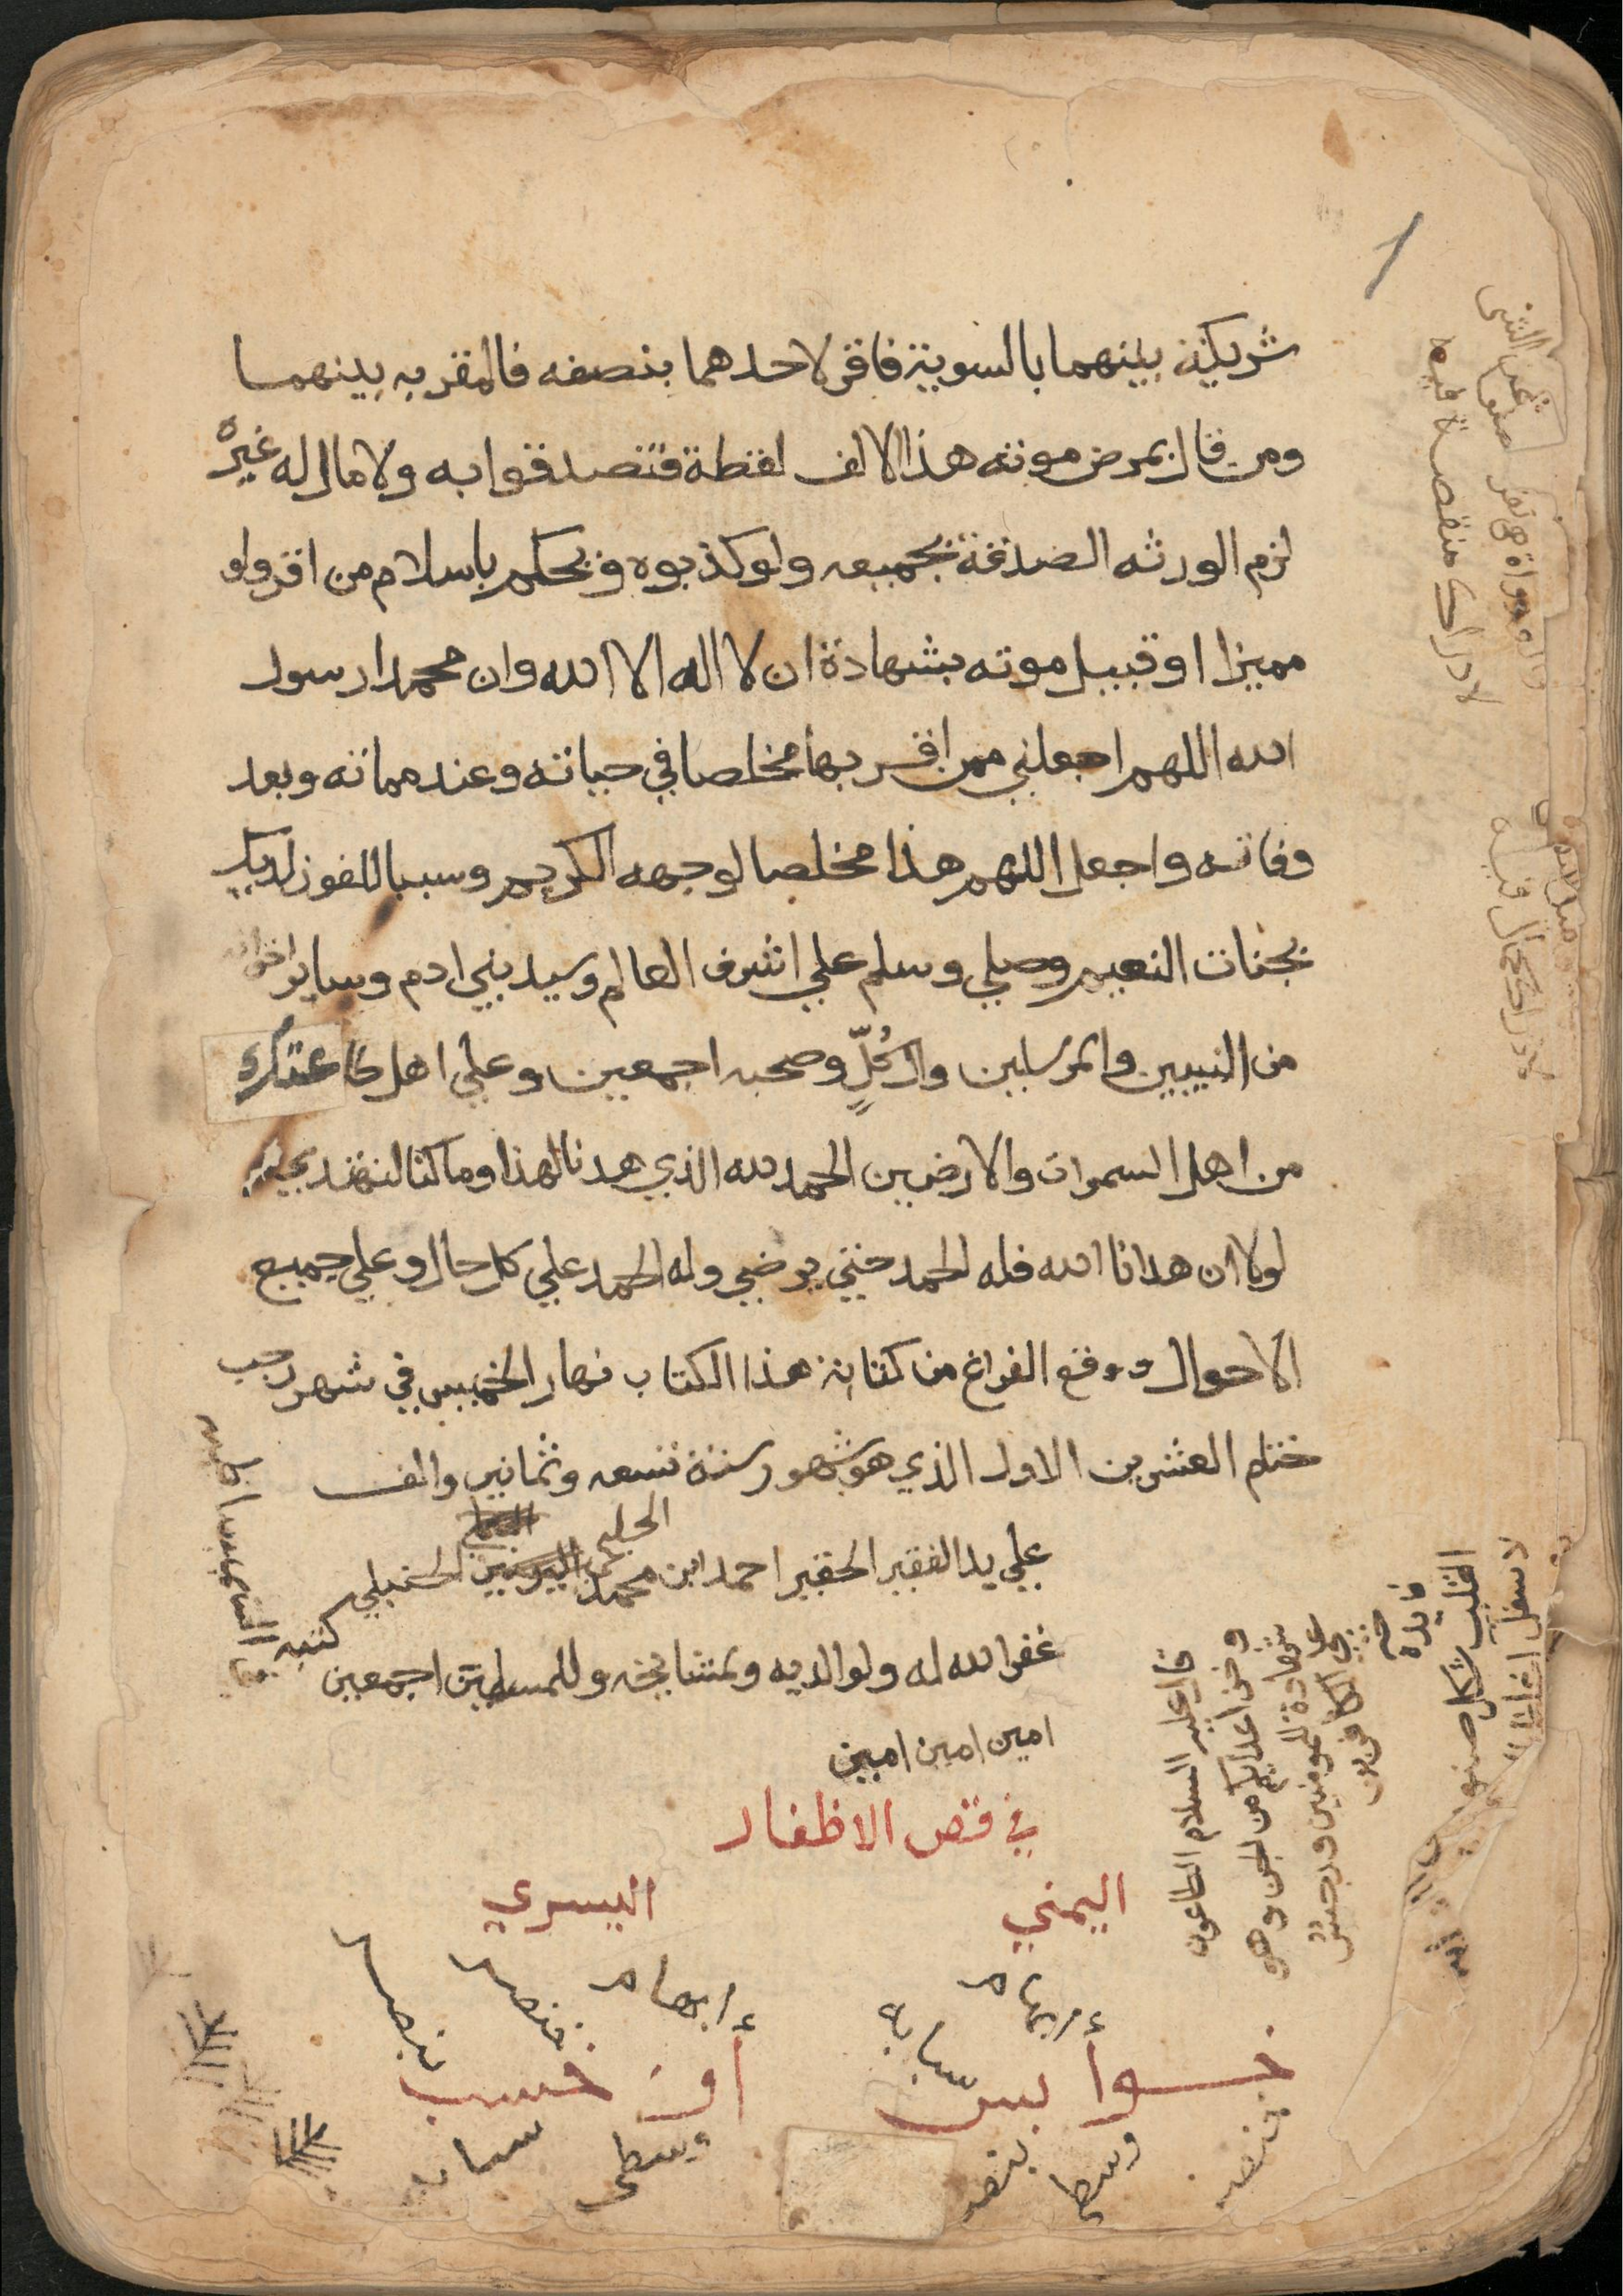 شريكية بينهما بالسوية فاقر لاحدهما بنصفه فالمقر به بينهما
ومن قال بمرض موته هذا الالف لقطة فتصدقوا به ولا مال له غيره
لزم الورثه الصدقة بجميعه ولو كذبوه ويحكم باسلام من اقر ولو
مميزا او قبيل موته بشهادة ان لا اله الا الله وان محمدا رسول
الله اللهم اجعلني ممن اقر بها مخلصا في حياته وعند مماته وبعد
وفاته واجعل اللهم هذا مخلصا لوجهه الكريم وسببا للفوز لديك
بجنات النعيم وصلي وسلم علي اشرف العالم وسيد بني ادم وساير اخوانه
من النبيين والمرسلين وال كُلٍّ وصحبه اجمعين وعلي اهل طاعتك
من اهل السموات والارضين الحمد لله الذي هدنا لهذا وما كنا لنهتدي
لولا ان هدانا الله فله الحمد حتي يرضي وله الحمد علي كل حال وعلي جميع
الاحوال ووقع الفراغ من كتابة هذا الكتاب نهار الخميس في شهر رجب
ختام العشرين الاول الذي هو شهور سنة تسعه وثمانين والف
علي يد الفقير الحقير احمد ابن محمد الحنبلي
غفر الله له ولوالديه ولمشايخه وللمسلمين اجمعين
امين امين امين
في قص الاظفار
اليمني
اليسري
ابهام
سبابة
خوابس
خنصر
وسطى
بنصر
ابهام
خنصر
بنصر
أوخسب
وسطى
سبابه
فايدة
قال عليه السلام الطاعون
وخز اعدايكم من الجن وهو
شهادة للمومنين ورجس
علي الكافرين
القلب شكل صنوبري